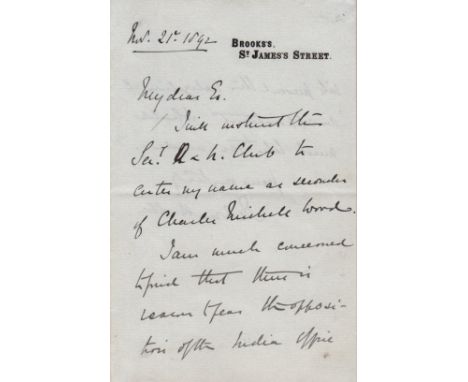 Nov. 21st. 1892
BROOKS'S.
ST JAMES'S STREET.
My dear
I will instruct the
Secy. Club to
enter my name as seconder
of Charles Michele Wood.
I am much concerned
to find that there is
reason to fear the opposi-
tion of the India Office